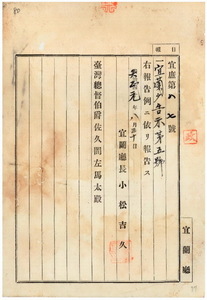 宜庶第八七號
目
一宜蘭廳告示第五號
右報告例ニ依リ報告ス
大正元年八月三十日
宜蘭廳長 小松吉久
臺灣總督伯爵佐久間左馬太殿
宜蘭廳